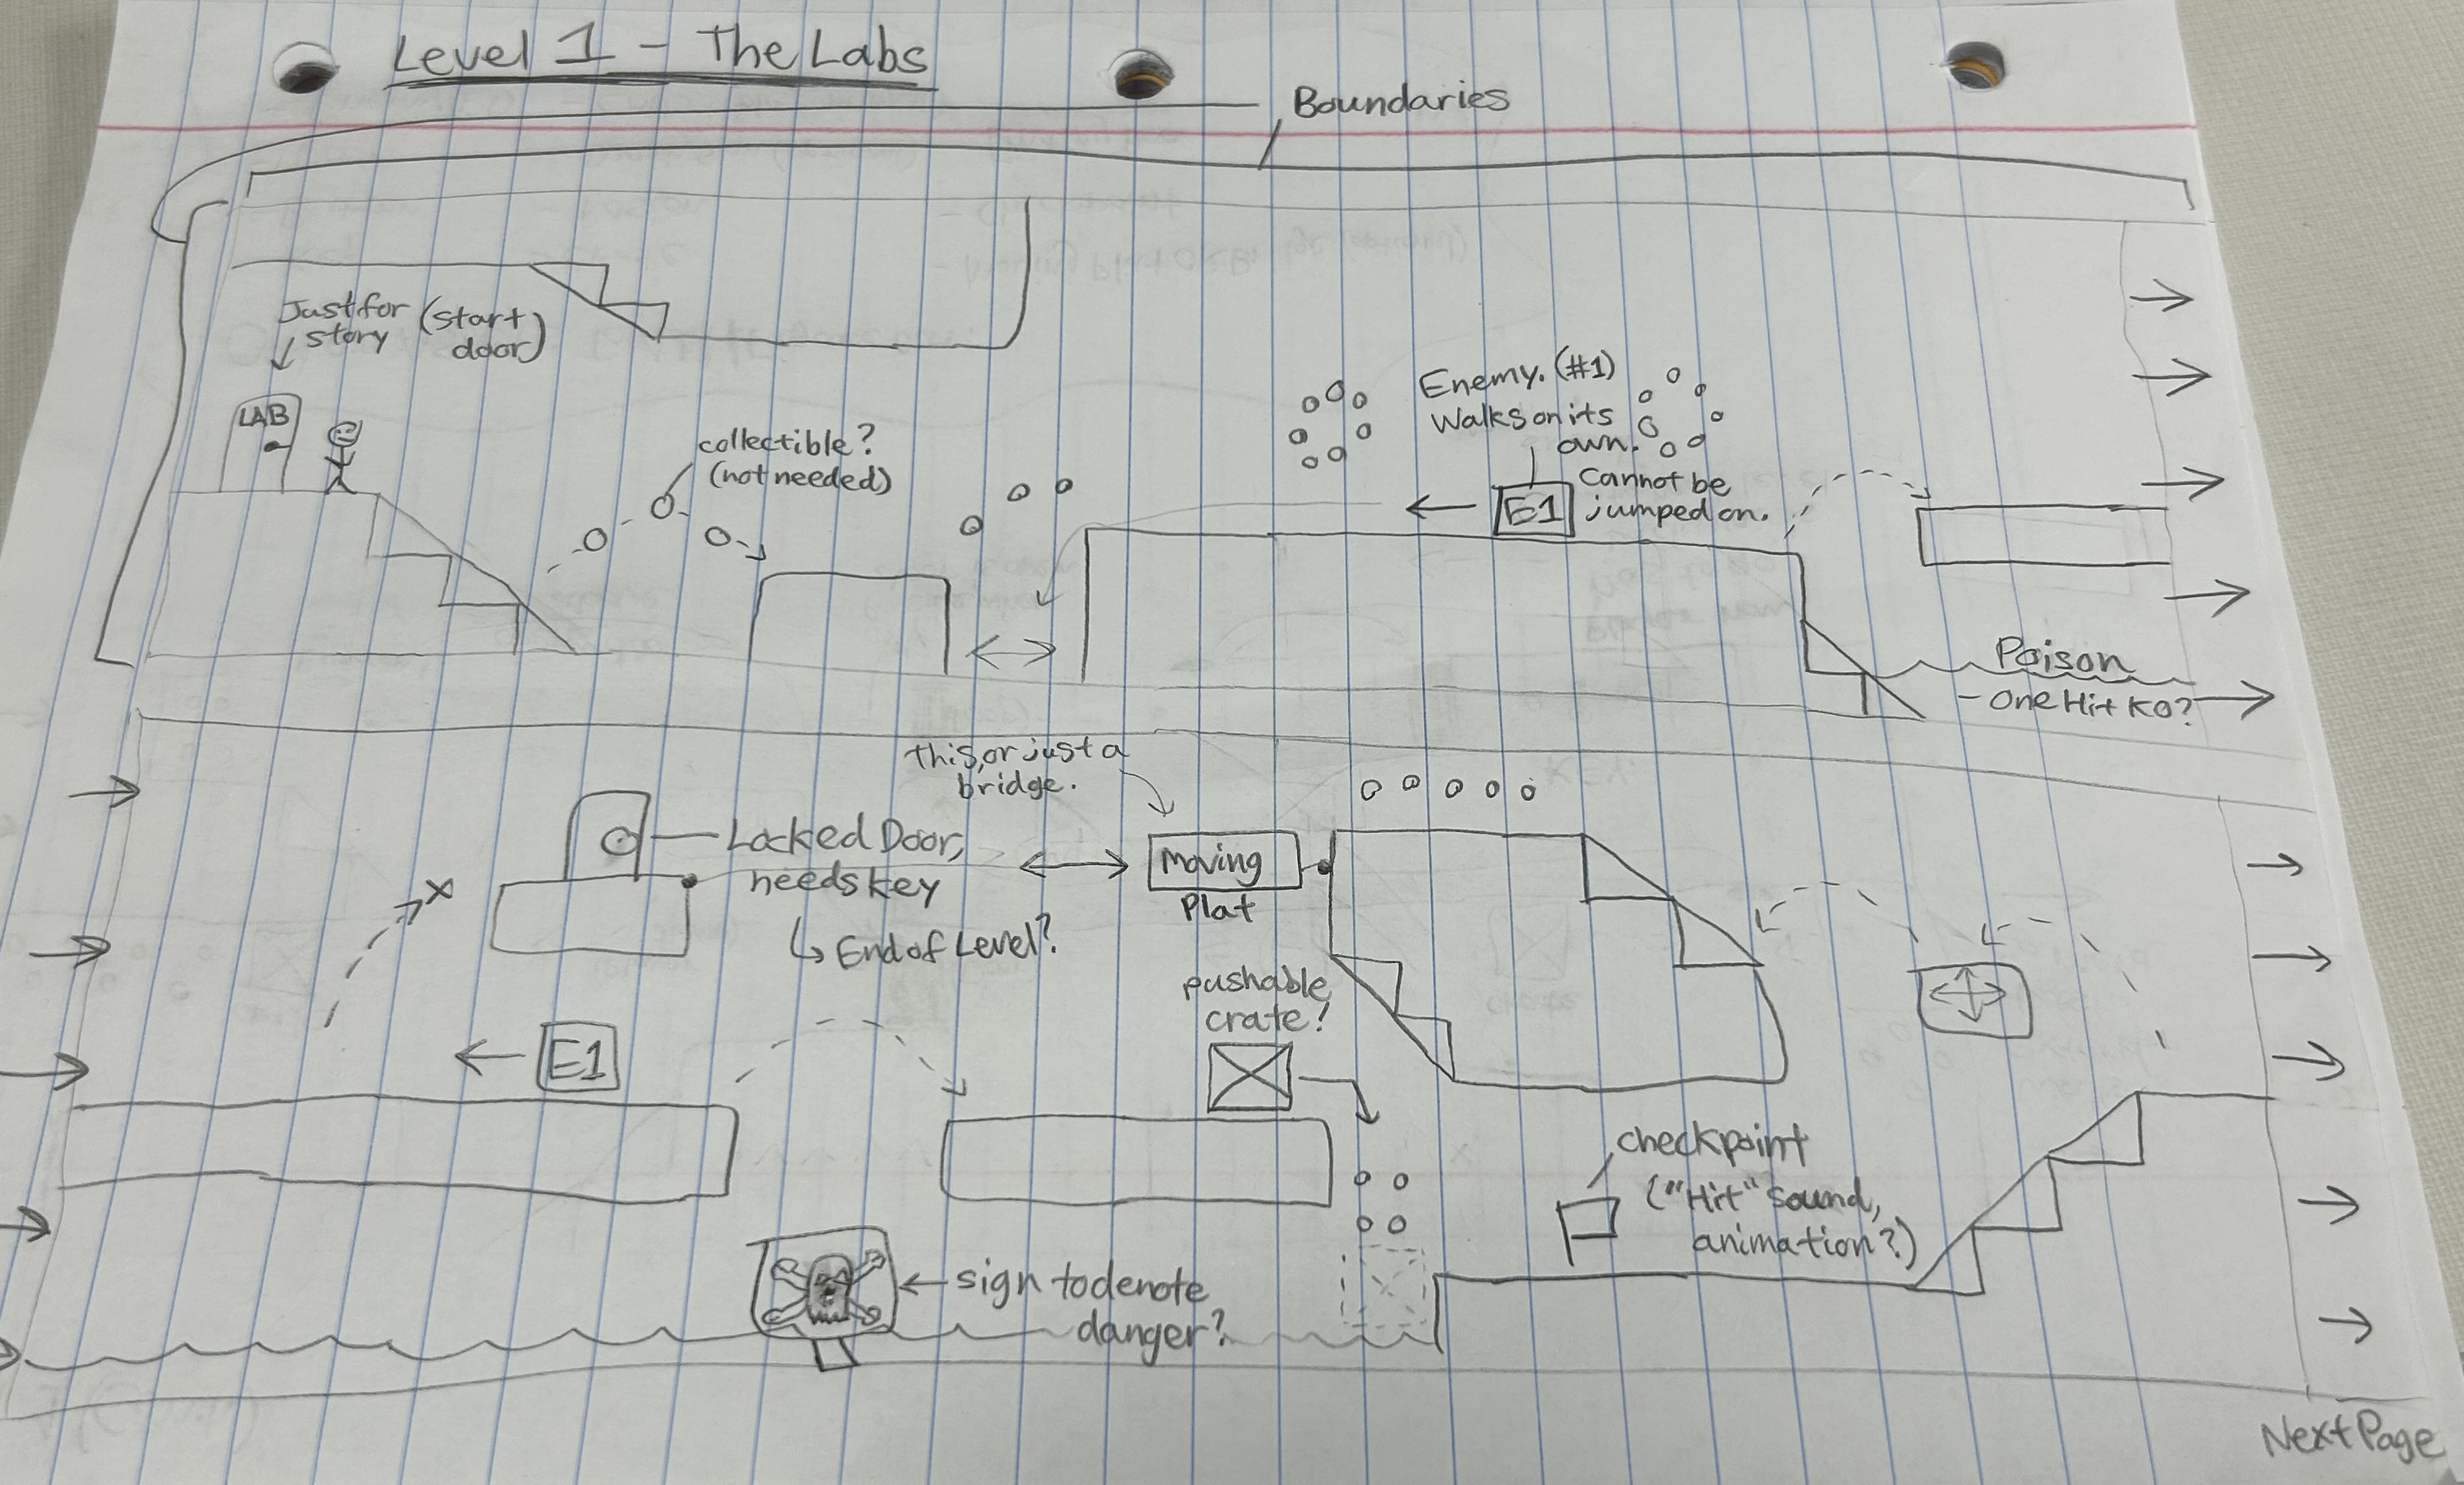 Level 1 - The Labs
Boundaries
Just for
story
(start
door)
LAB
collectible?
(not needed)
Enemy. (#1)
Walks on its
own.
Cannot be
jumped on.
E1
Poison
- One Hit KO?
This, or just a
bridge.
Locked Door,
needs key
↳ End of Level?
moving
Plat
pushable
crate!
E1
checkpoint
("Hit" sound,
animation?)
sign to denote
danger?
Next Page